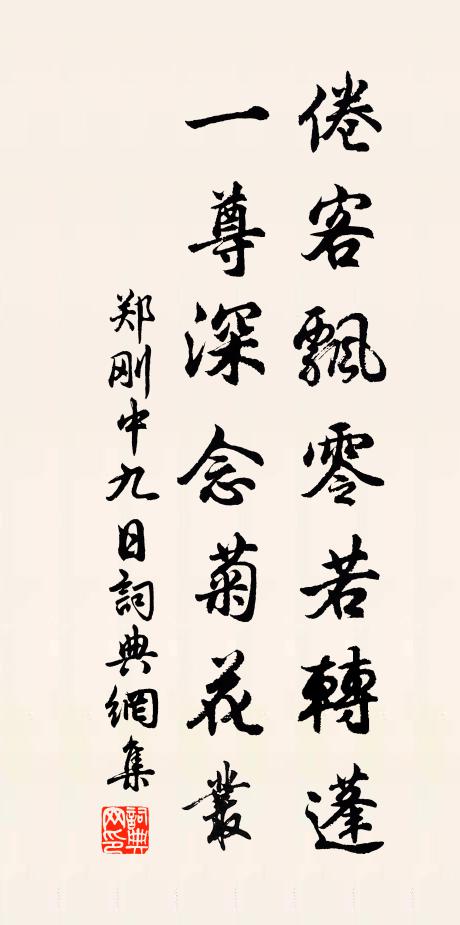 倦客飄零若轉蓬
一尊深念菊花叢
郑刚中九日詞典網集
詞典网印